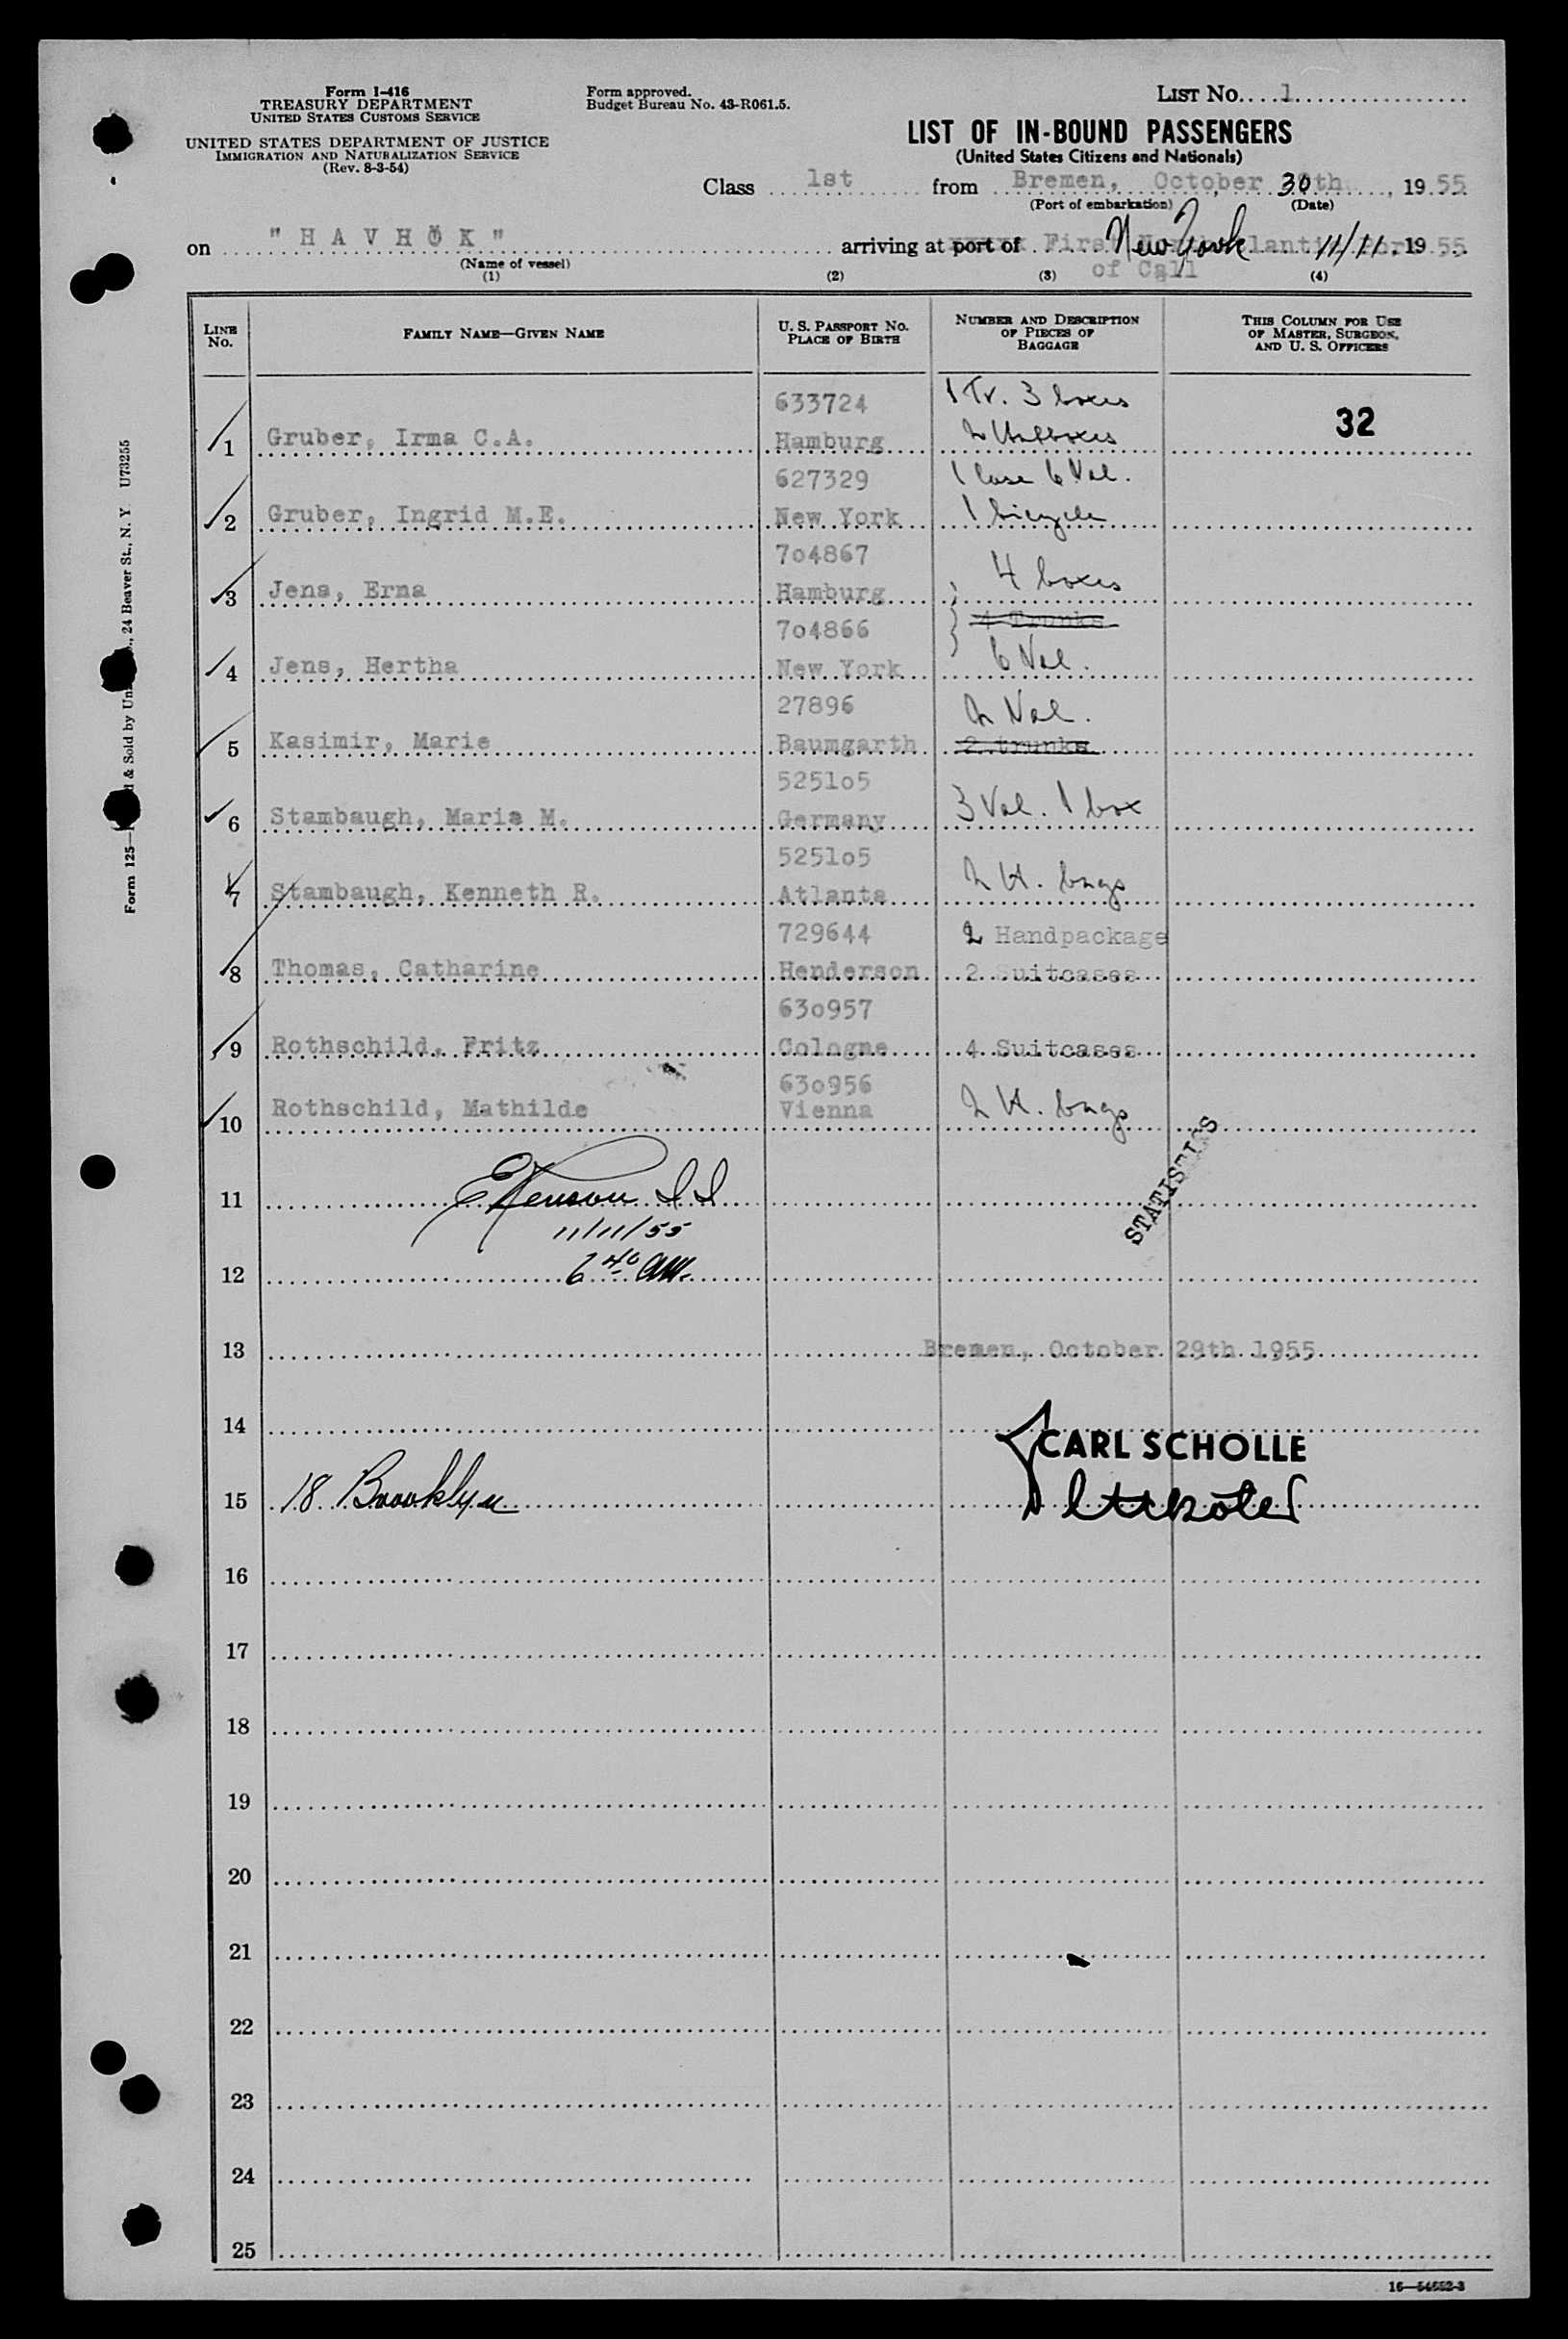 Form I-416
TREASURY DEPARTMENT
UNITED STATES CUSTOMS SERVICE
UNITED STATES DEPARTMENT OF JUSTICE
IMMIGRATION AND NATURALIZATION SERVICE
(Rev. 8-3-54)
Form approved.
Budget Bureau No. 43-R061.5.
LIST NO. 1
LIST OF IN-BOUND PASSENGERS
(United States Citizens and Nationals)
Class 1st from Bremen, October 30th, 1955
(Port of embarkation) (Date)
on "HAVHÖK" arriving at port of New York 11/11, 1955
of Call
(Name of vessel)
(1) (2) (3) (4)
LINE NO. FAMILY NAME—GIVEN NAME U. S. PASSPORT NO. PLACE OF BIRTH NUMBER AND DESCRIPTION OF PIECES OF BAGGAGE THIS COLUMN FOR USE OF MASTER, SURGEON, AND U. S. OFFICERS
633724 1 Tr. 3 boxes 32
1 Gruber, Irma C.A. Hamburg 2
627329 1 Case 6 Val.
2 Gruber, Ingrid M.E. New York 1 bicycle
7o4867 4 boxes
3 Jens, Erna Hamburg
7o4866 4 Trunks
4 Jens, Hertha New York 6 Val.
27896 2 Val.
5 Kasimir, Marie Baumgarth 2 trunks
5251o5 3 Val. 1 box
6 Stambaugh, Maria M. Germany
5251o5 2 H. bags
7 Stambaugh, Kenneth R. Atlanta
729644 2 Handpackage
8 Thomas, Catharine Henderson 2 Suitcases
63o957
9 Rothschild, Fritz Cologne 4 Suitcases
63o956
10 Rothschild, Mathilde Vienna 2 H. bags
STATISTICS
11
11/11/55
12 6 40 AM.
13 Bremen, October 29th 1955
14 CARL SCHOLLE
15 18 Brooklyn
16
17
18
19
20
21
22
23
24
25
16—54652-3
Form 125— & Sold by , 24 Beaver St., N. Y U73255